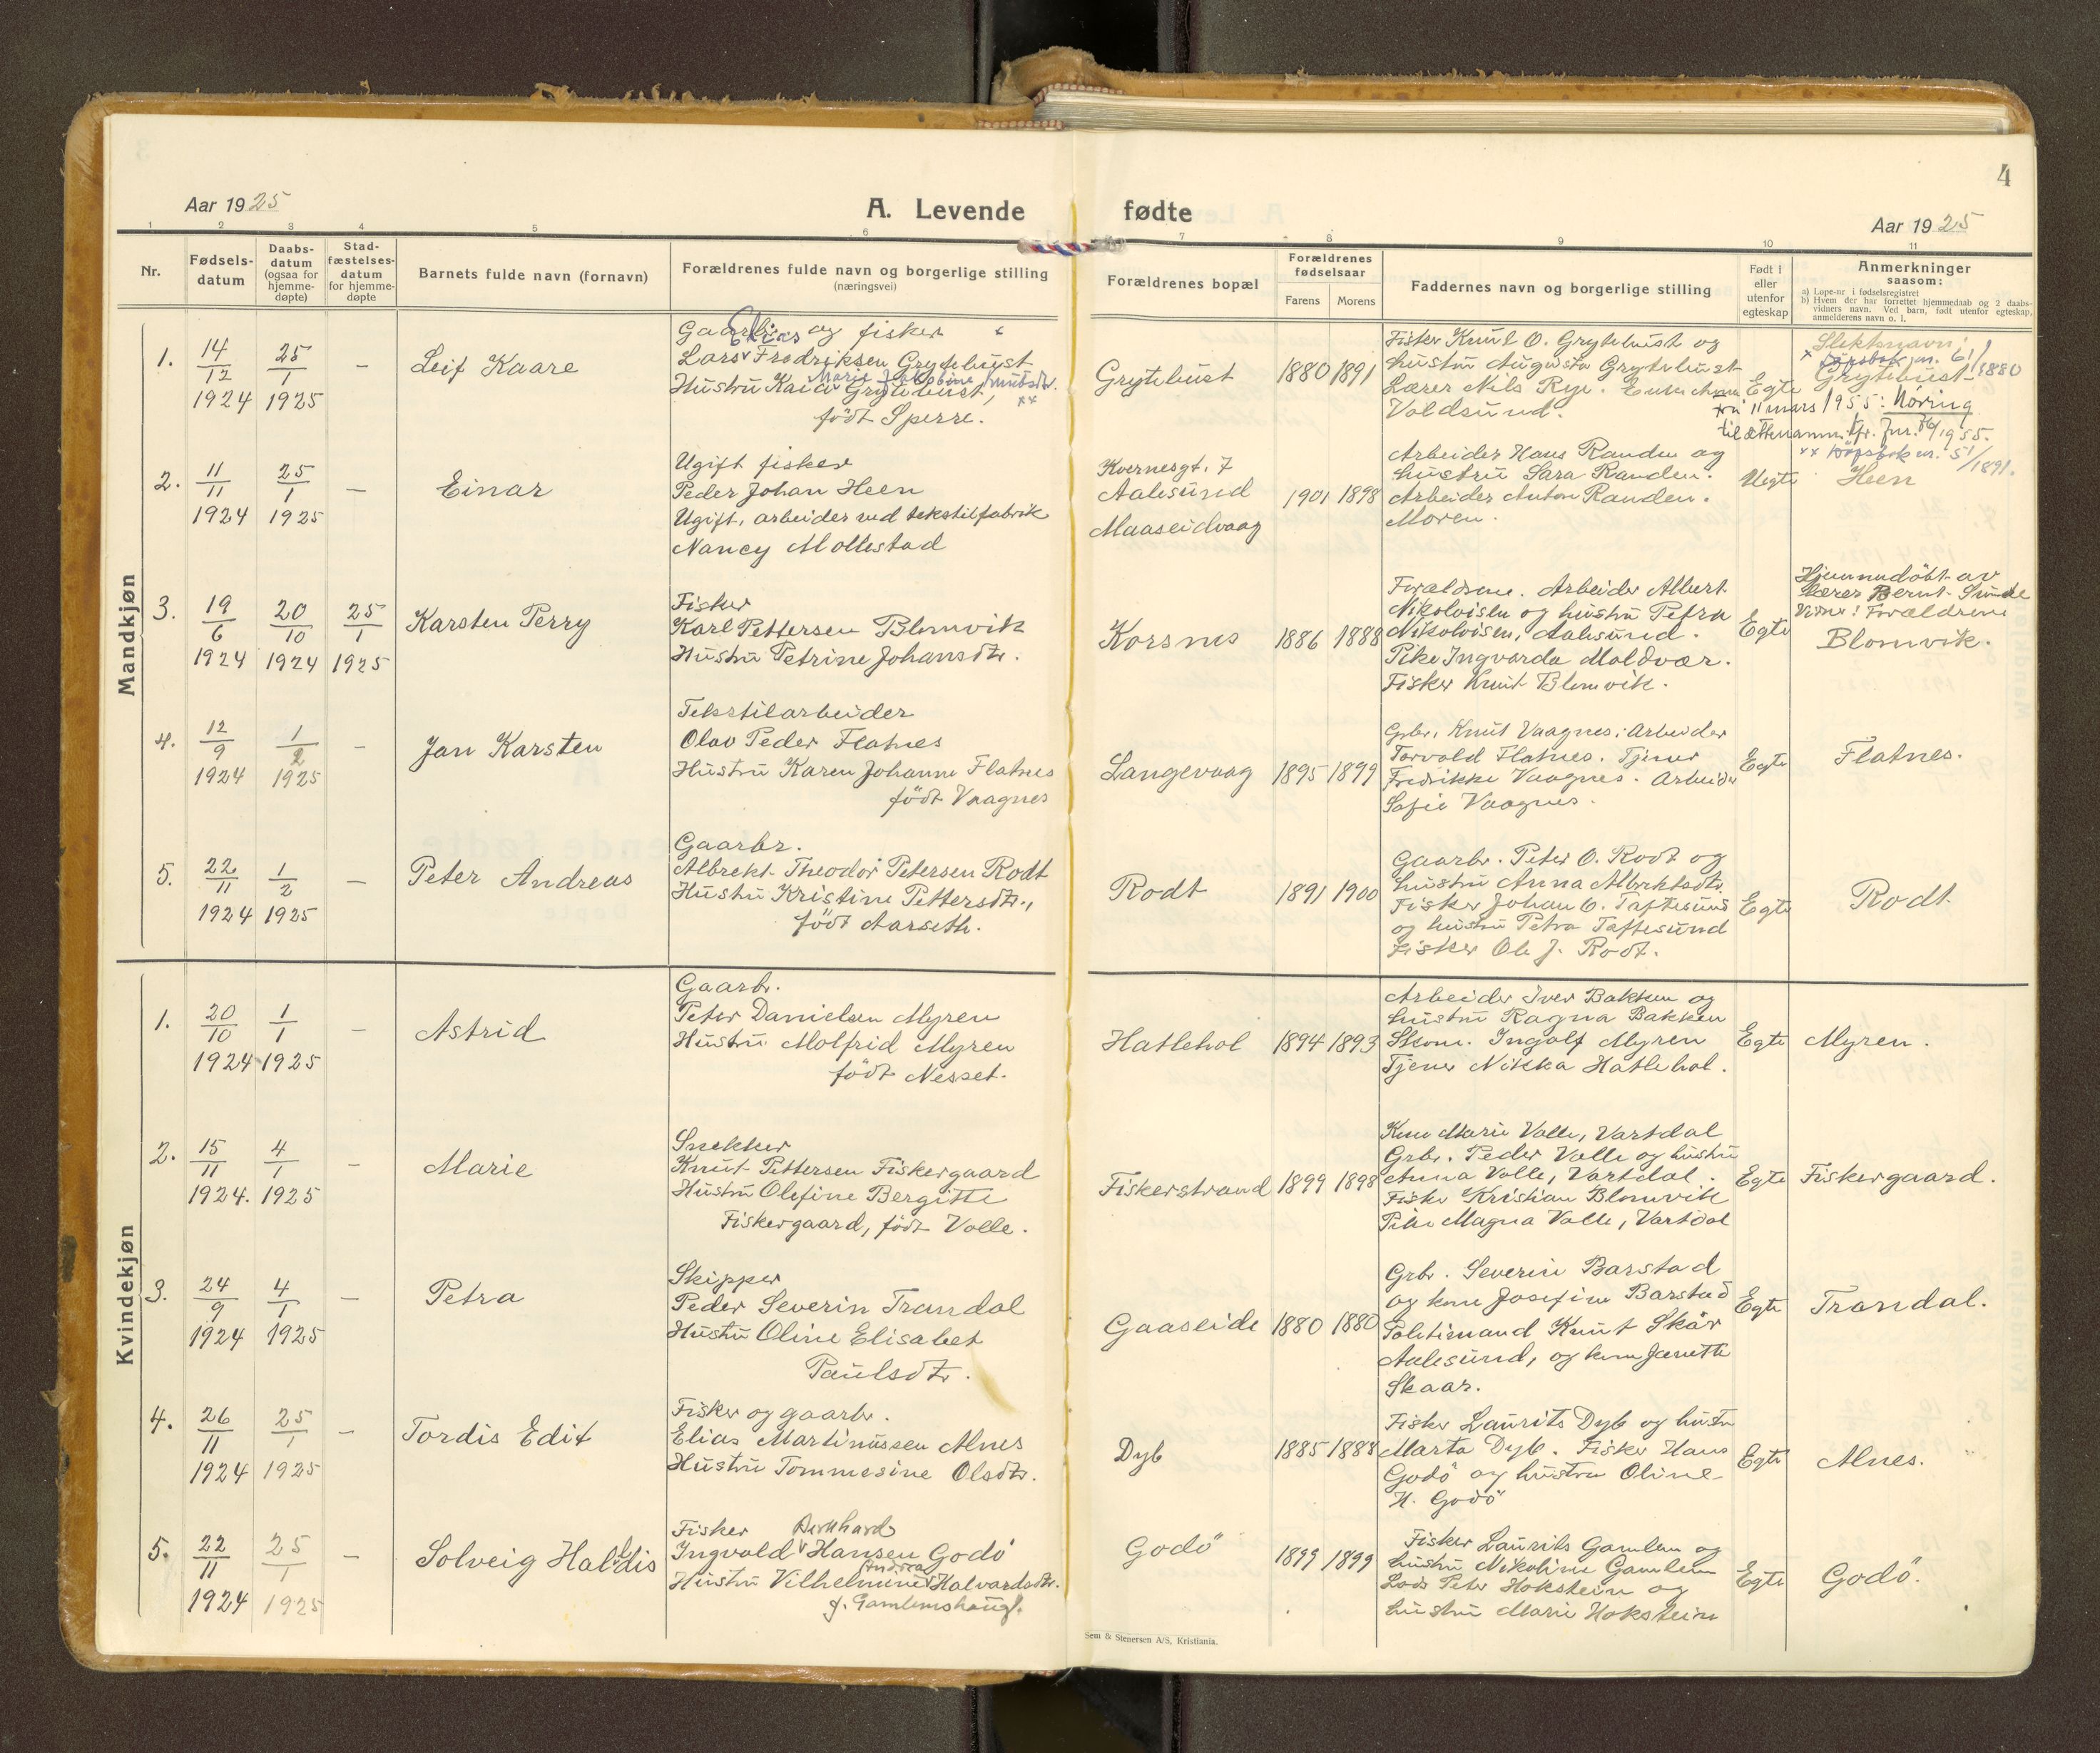 4
Aar 1925
A. Levende
fødte
Aar 1925
1 2 3 4 5 6 7 8 9 10 11
Nr.
Fødsels-
datum
Daabs-
datum
(ogsaa for
hjemme-
døpte)
Stad-
fæstelses-
datum
for hjemme-
døpte
Barnets fulde navn (fornavn)
Forældrenes fulde navn og borgerlige stilling
(næringsvei)
Forældrenes bopæl
Forældrenes
fødselsaar
Farens
Morens
Faddernes navn og borgerlige stilling
Født i
eller
utenfor
egteskap
Anmerkninger
saasom:
a) Løpe-nr i fødselsregistret
b) Hvem der har forrettet hjemmedaab og 2 daabs-
vidners navn. Ved barn, født utenfor egteskap,
anmelderens navn o. l.
Mandkjøn
1.
14/12
1924
25/1
1925
—
Leif Kaare
Gaarbr. og fisker
Elias
Lars Fredriksen Grytehust
Marie Jakobine Knutsdtr.
Hustru Kaia Grytehust, xx
født Sperre.
Grytehust
1880
1891
Fisker Knut O. Grytehust og
hustru Augusta Grytehust
Lærer Nils Rye.
Voldsund.
Egte
Slektsnavn!
x døpsbok nr. 61/1880
Grytehust
fra 11 mars 1955: Noring
til ættenamn. Jfr. Jnr. 86/1955.
xx Döpsbok nr. 51/1891.
2.
11/11
1924
25/1
1925
—
Einar
Ugift fisker
Peder Johan Heen
Ugift, arbeider ved tekstilfabrik
Nancy Mollestad
Kvernesgt. 7
Aalesund
Maaseidvaag
1901
1898
Arbeider Hans Randen og
hustru Sara Randen.
Arbeider Anton Randen.
Moren.
Uegte
Heen
3.
19/6
1924
20/10
1924
25/1
1925
Karsten Perry
Fisker
Karl Pettersen Blomvik
Hustru Petrine Johansdtr.
Korsnes
1886
1888
Forældrene. Arbeider Albert
Nikolaisen og hustru Petra
Nikolaisen, Aalesund.
Pike Ingvarda Moldvær.
Fisker Knut Blomvik.
Egte
Hjemmedøbt av
Lærer Bernt Sunde
Vidne: Forældrene
Blomvik.
4.
12/9
1924
1/2
1925
—
Jan Karsten
Tekstilarbeider
Olav Peder Flatnes
Hustru Karen Johanne Flatnes
født Vaagnes
Langevaag
1895
1899
Grbr. Knut Vaagnes. Arbeider
Torvald Flatnes. Tjener
Fredrikke Vaagnes. Arbeider
Sofie Vaagnes.
Egte
Flatnes.
5.
22/11
1924
1/2
1925
—
Peter Andreas
Gaarbr.
Albrekt Theodor Petersen Rodt
Hustru Kristine Pettersdtr.,
født Aarseth.
Rodt
1891
1900
Gaarbr. Peter O. Rodt og
hustru Anna Albrektsdtr.
Fisker Johan O. Taftesund
og hustru Petra Taftesund
Fisker Ole J. Rodt.
Egte
Rodt
Kvindekjøn
1.
20/10
1924
1/1
1925
—
Astrid
Gaarbr.
Peter Danielsen Myren
Hustru Molfrid Myren
født Nesset.
Hatlehol
1894
1893
Arbeider Iver Bakken og
hustru Ragna Bakken
Skom. Ingolf Myren
Tjener Nikka Hatlehol.
Egte
Myren.
2.
15/11
1924.
4/1
1925
—
Marie
Snekker
Knut Pettersen Fiskergaard
Hustru Olefine Bergitte
Fiskergaard, født Volle.
Fiskerstrand
1899
1898
Kone Marie Valle, Vartdal
Grbr. Peder Valle og hustru
Anna Valle, Vartdal.
Fisker Kristian Blomvik
Pike Magna Valle, Vartdal
Egte
Fiskergaard.
3.
24/9
1924
4/1
1925
—
Petra
Skipper
Peder Severin Trandal
Hustru Oline Elisabet
Paulsdtr.
Gaaseide
1880
1880
Grbr. Severin Barstad
og kone Josefine Barstad
Politimand Knut Skår
Aalesund, og kone Janette
Skaar.
Egte
Trandal.
4.
26/11
1924
25/1
1925
—
Tordis Edit
Fisker og gaarbr.
Elias Martinussen Alnes
Hustru Tommesine Olsdtr.
Dyb
1885
1888
Fisker Laurits Dyb og hustru
Marta Dyb. Fisker Hans
Godö og hustru Oline
H. Godö
Egte
Alnes.
5.
22/11
1924
25/1
1925
—
Solveig Halldis
Fisker Bernhard
Ingvald Hansen Godö
Andrea
Hustru Vilhelmine Halvardsdtr.
f. Gamlemshaug.
Godö
1899
1899
Fisker Laurits Gamlem og
hustru Nikoline Gamlem
Lods Peter Hokstein og
hustru Marie Hokstein
Egte
Godö.
Sem & Stenersen A/S, Kristiania.